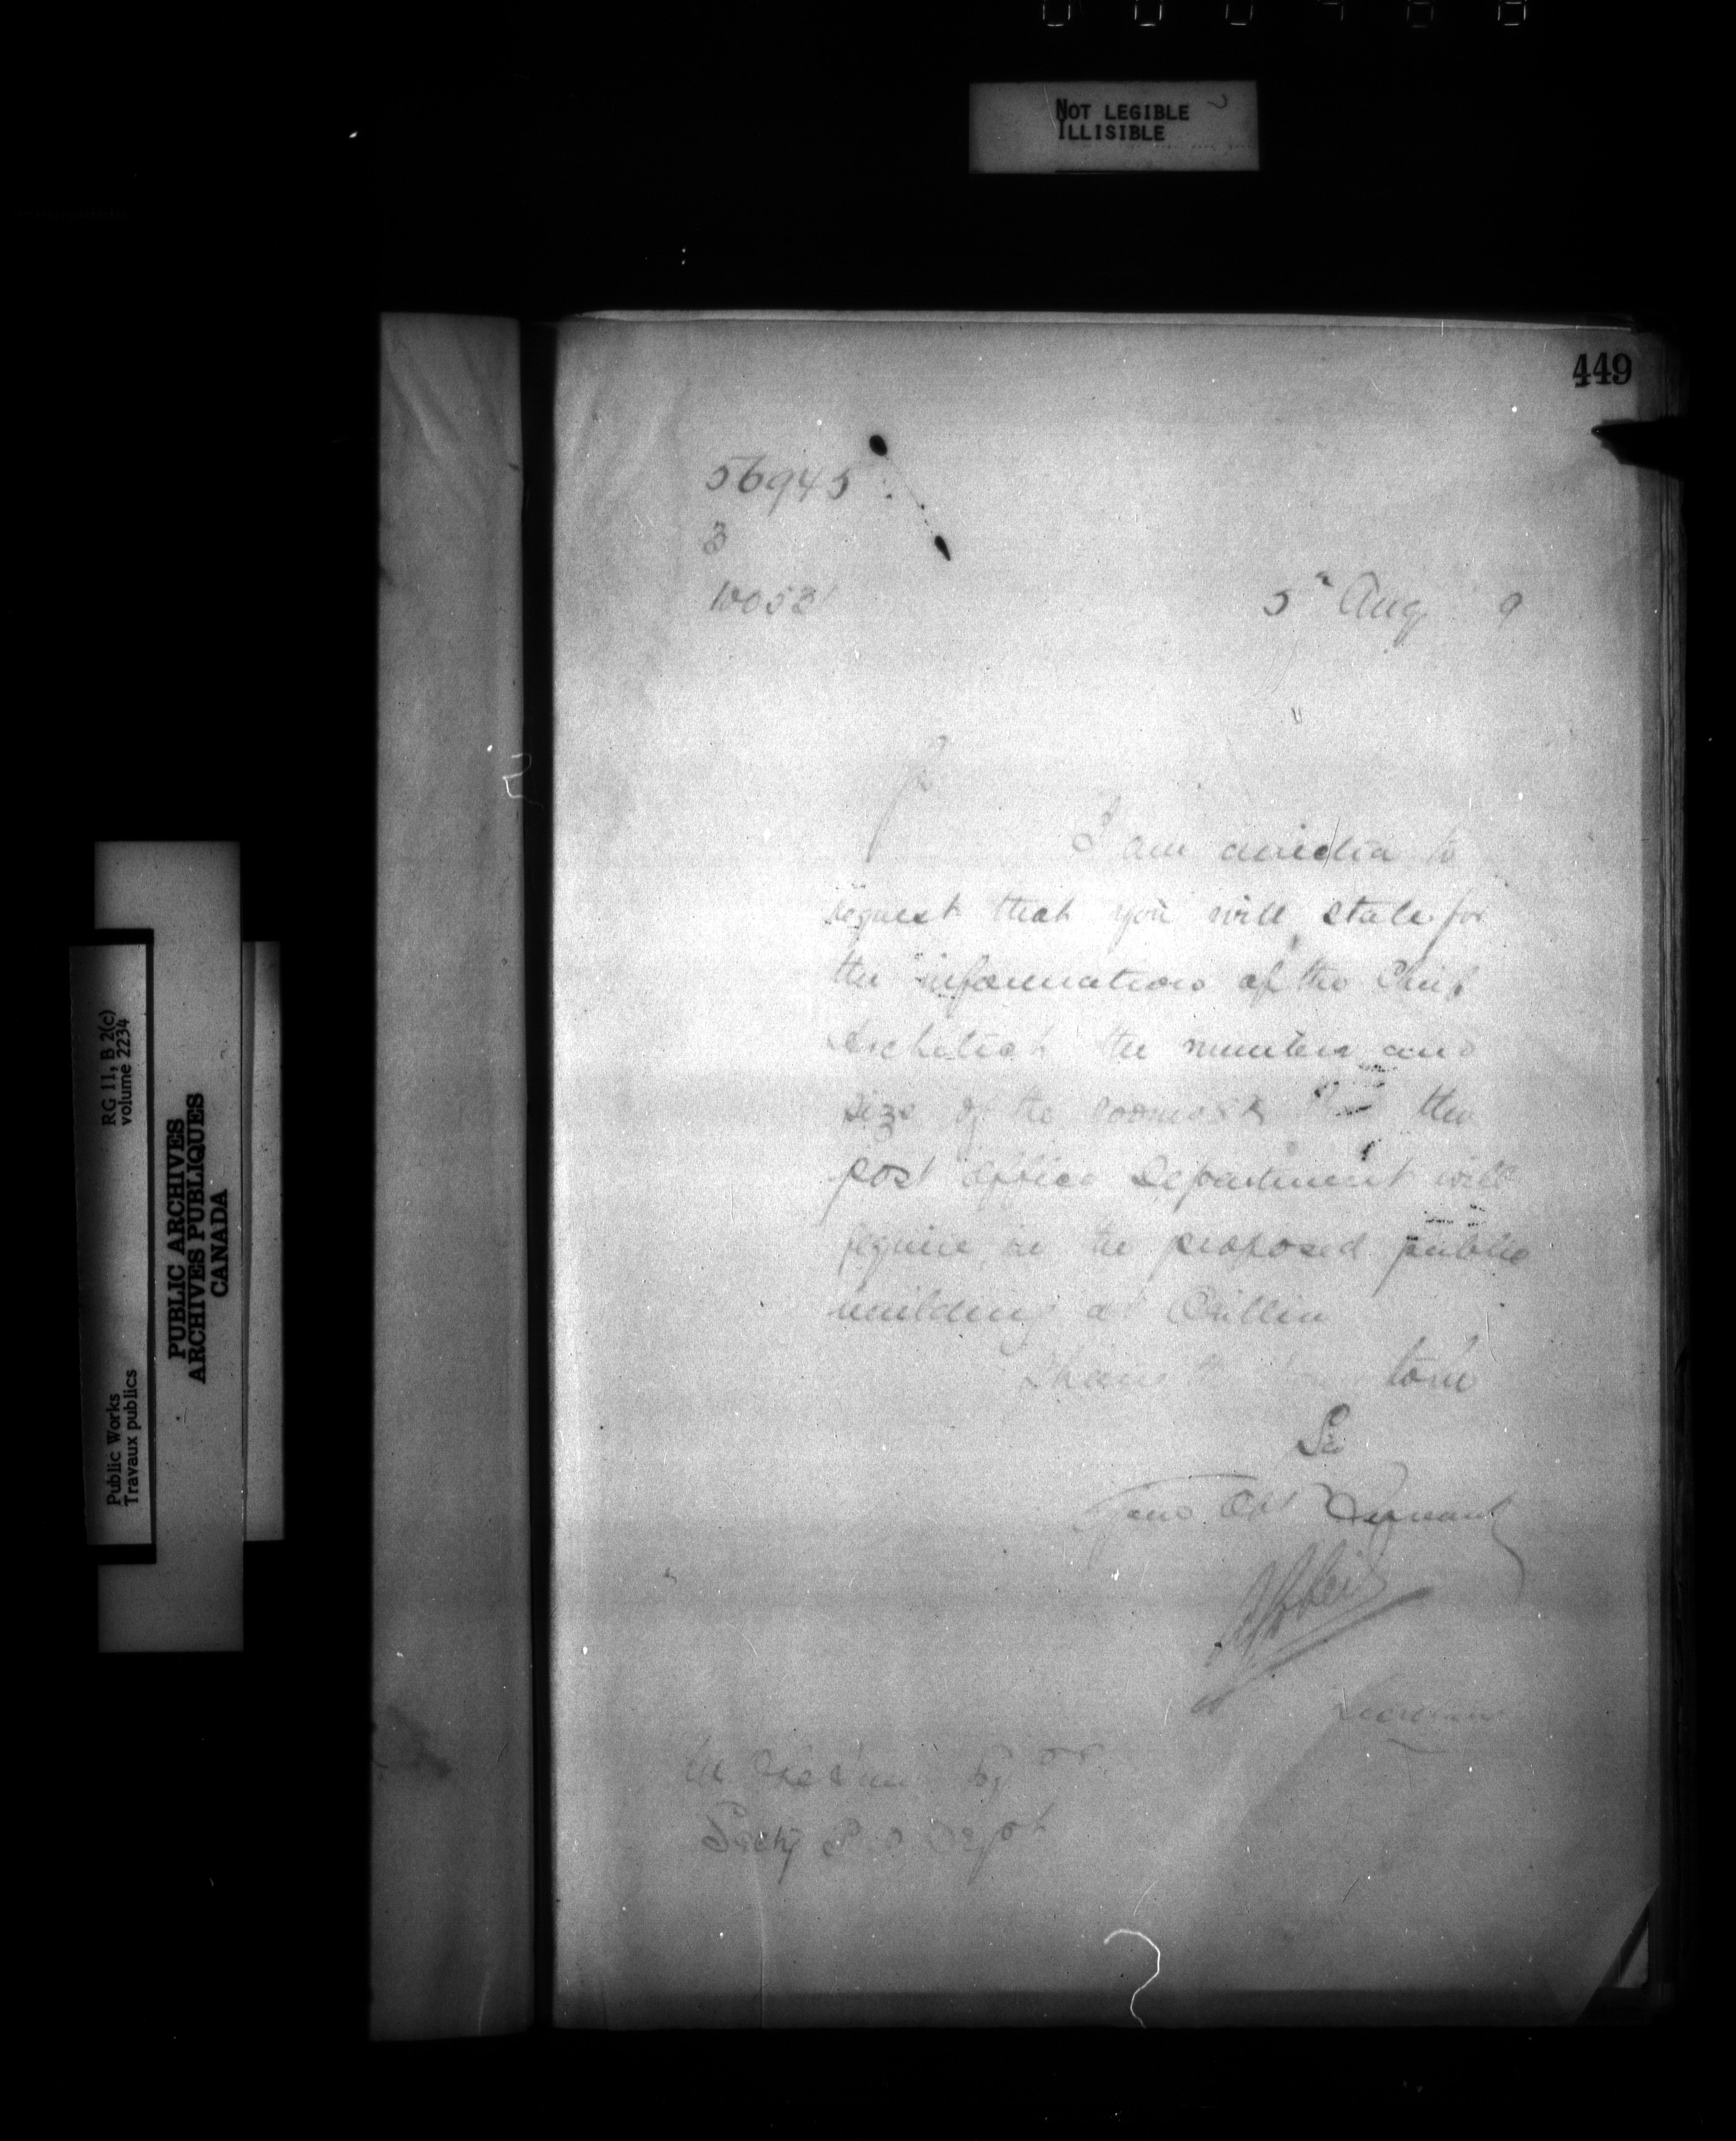 NOT LEGIBLE
ILLISIBLE
449
56945
3
10053
5th Aug 9
I am directed to
request that you will state for
the information of the Chief
Architect the number and
size of the rooms the
post office Department will
require in the proposed public
building at Orillia
to be
Sir
Your Obt Servant
Secretary
Secty P O Dept
RG 11, B 2(c)
volume 2234
Public Works
Travaux publics
PUBLIC ARCHIVES
ARCHIVES PUBLIQUES
CANADA